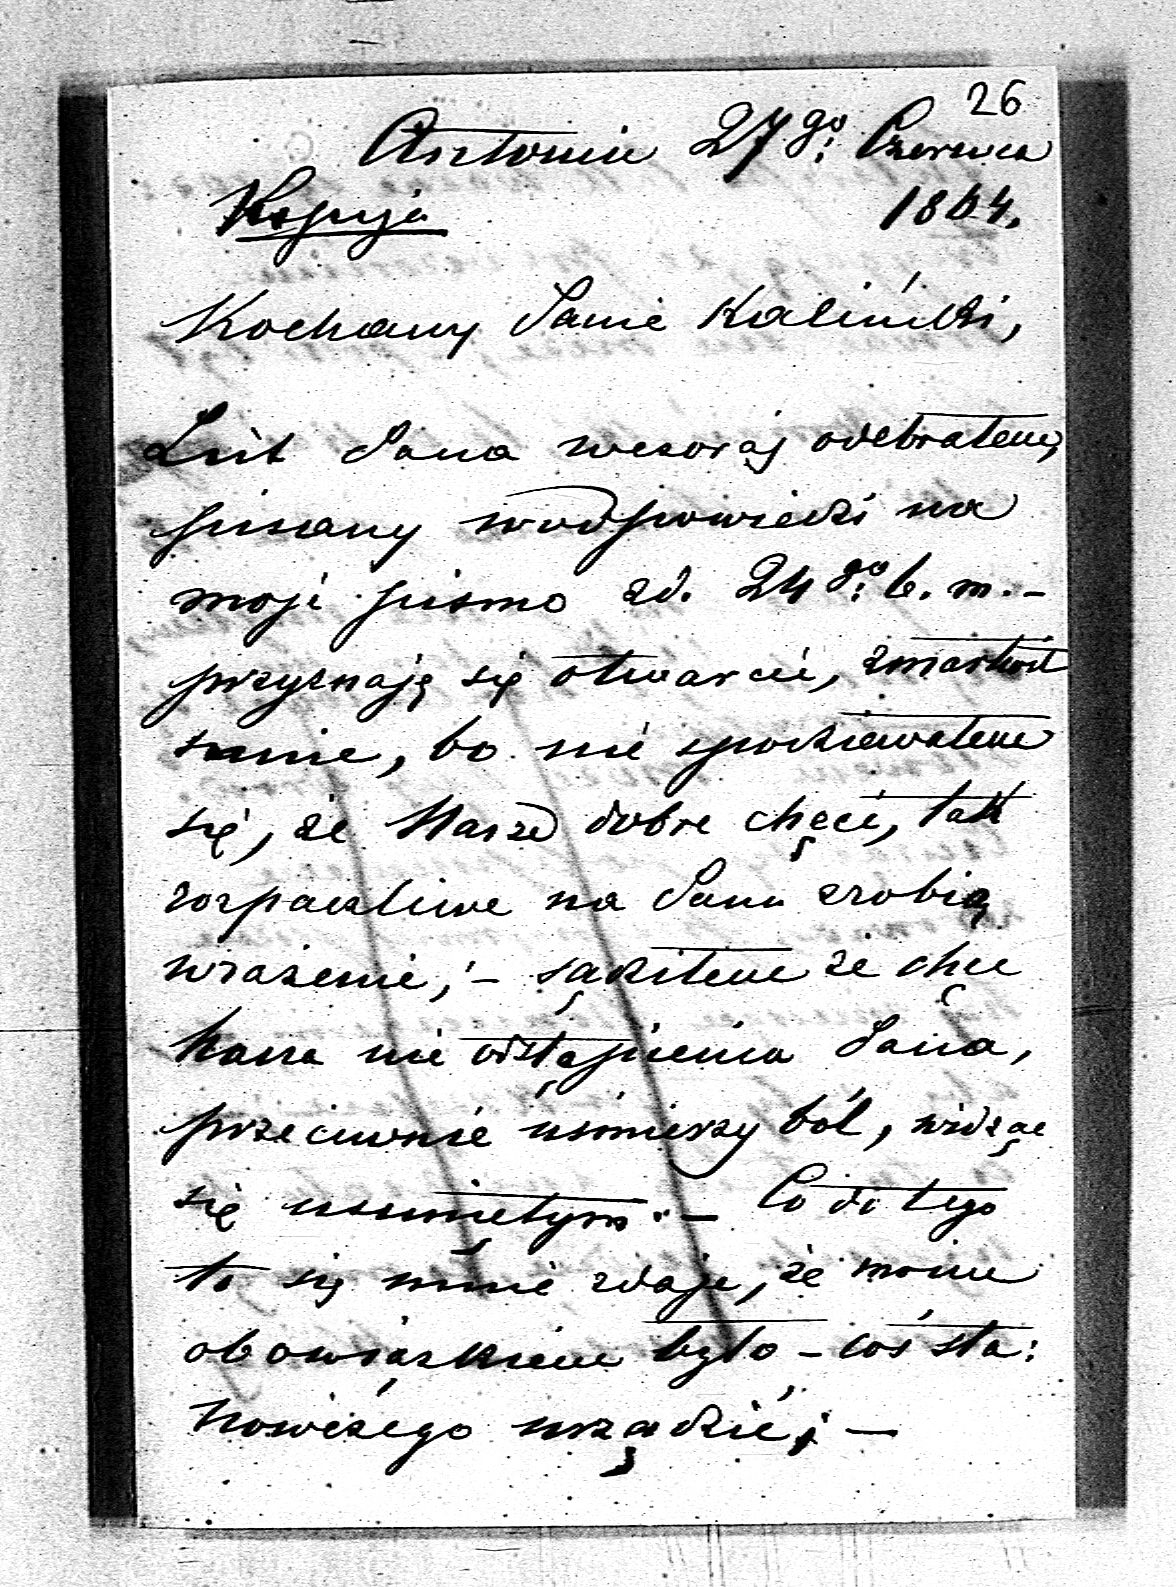 26
Antonin 27go: Czerwca
Kopija 1864.
Kochany Panie Kaliński,
List Pana wczoraj odebrałem,
pisany wodpowiedzi na
moje pismo zd. 24go: b. m. –
przyznaję się otwarcie, zmartwił
mnie, bo nie spodziewałem
się, że Nasze dobre chęci, tak
rozpaczliwe na Panu zrobią
wrażenie; – sądziłem że chęć
Nasza nie odstąpienia Pana,
przeciwnie uśmierzy ból, widząc
się usuniętym. – Co do tego
to się mnie zdaje, że moim
obowiązkiem było – coś sta:
nowczego urządzić; –